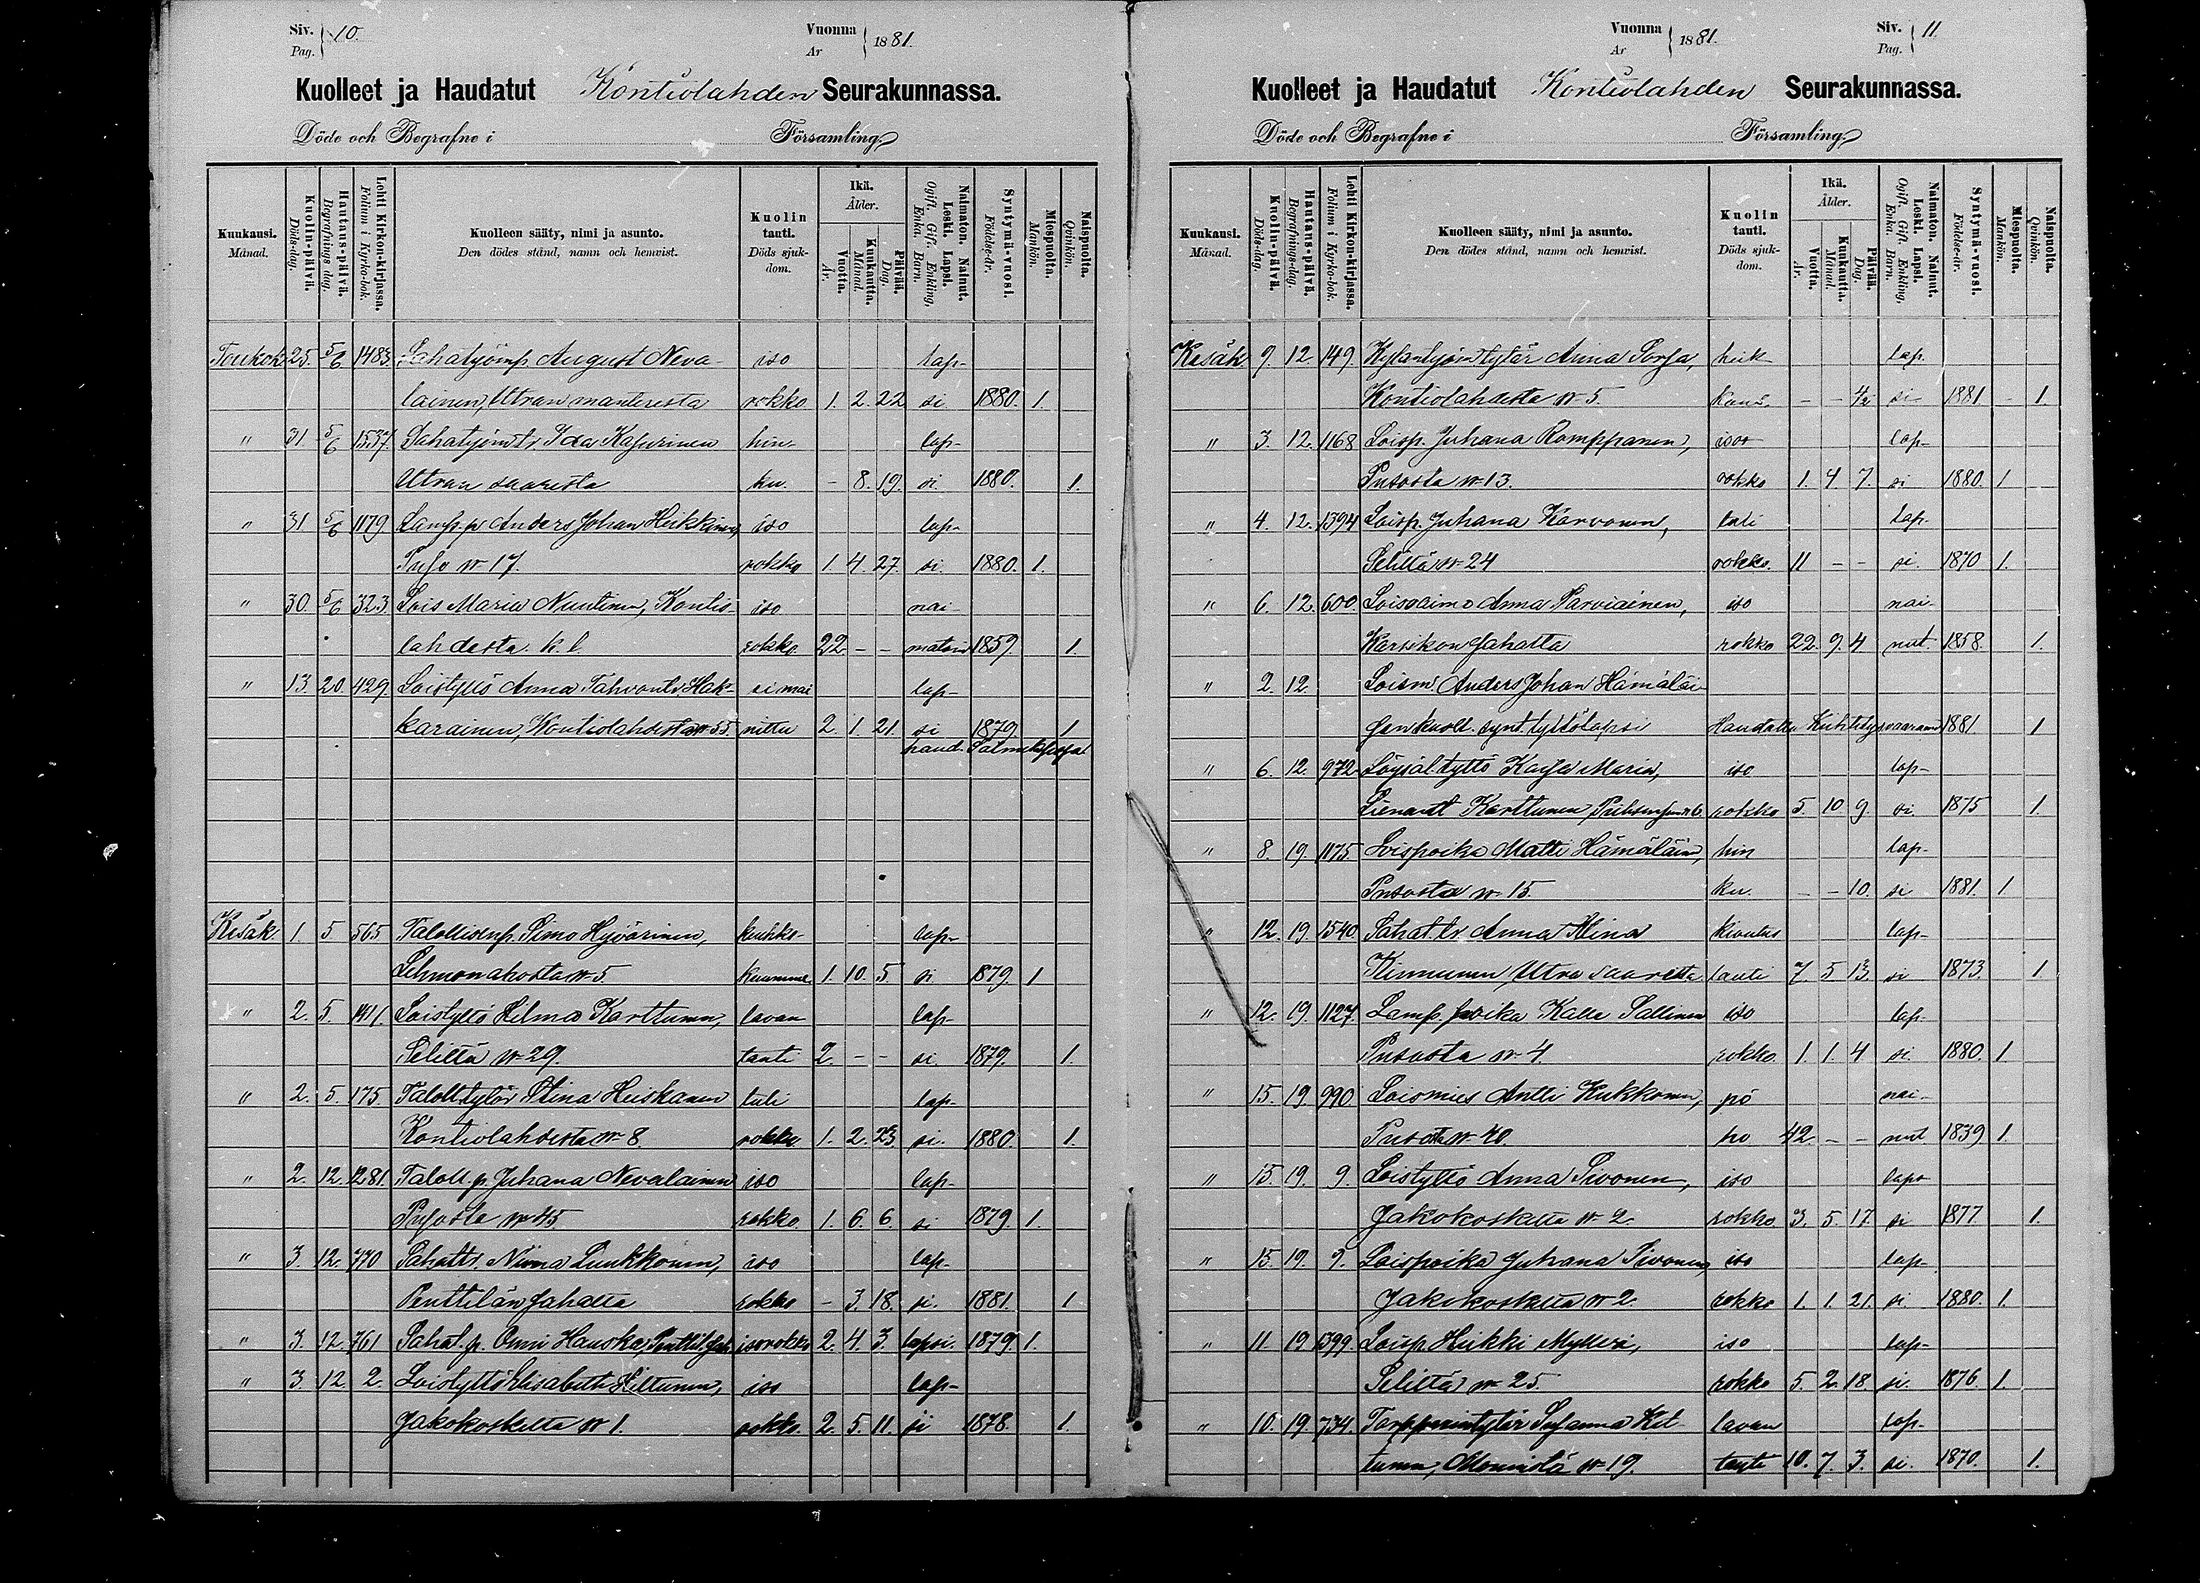 Siv. Pag. 10. Vuonna År 1881.
Kuolleet ja Haudatut Kontiolahden Seurakunnassa.
Döde och Begrafne i Församling.
Kuukausi. Månad. Kuolin-päivä. Döds-dag. Hautaus-päivä. Begrafnings dag. Lehti Kirkon-kirjassa. Folium i Kyrko-bok. Kuolleen sääty, nimi ja asunto. Den dödes stånd, namn och hemvist. Kuolin tauti. Döds sjukdom. Ikä. Ålder. Vuotta. År. Kuukautta. Månad. Päivää. Dag. Naimaton. Nainut. Leski. Lapsi. Ogift. Gift. Enkling, Enka. Barn. Syntymä-vuosi. Födelse-år. Miespuolta. Mankön. Naispuolta. Qvinkön.
Toukok. 25. 5/6 1483. Sahatyömp. August Neva- iso lap-
lainen, Utran manteresta rokko 1. 2. 22 si 1880. 1.
" 31 5/6 1537. Sahatyöm tr. Ida Kajurinen hin- lap-
Utran saaresta ku. - 8. 19. si. 1880. 1.
" 31 5/6 1179. Lamp. p. Anders Johan Heikkinen, iso lap-
Puso № 17. rokko 1. 4. 27. si. 1880. 1.
" 30. 5/6 323. Lois Maria Nuutinen, Kontio- iso nai-
lahdesta. k. l. rokko. 22 - - matoin 1859. 1.
" 13. 20. 429. Loistyttö Anna Tahvont. Hak- lap-
karainen, Kontiolahdesta № 55. nittu 2. 1. 21. si 1879. 1
haud.
Kesäk. 1. 5 565 Talollisenp. Simo Hyvärinen, kuhko- lap-
Lehmonahosta № 5. kuumme. 1. 10. 5. si 1879. 1
" 2. 5. 1411. Loistyttö Helma Karttunen, lavan lap-
Selittä № 29. tauti 2. - - si. 1879. 1.
" 2. 5. 175. Taloll. tytär Stina Heiskanen tuli lap-
Kontiolahdesta № 8. rokko 1. 2. 23. si. 1880. 1.
" 2. 12. 1281. Taloll. p. Juhana Nevalainen iso lap-
Pusosta № 45 rokko. 1. 6. 6. si 1879. 1.
" 3. 12. 770 Sahattr. Niina Luukkonen, iso lap-
Penttilän sahalta rokko - 3. 18. si. 1881. 1
" 3. 12. 761 Sahat. p. Onni Hauska, Penttil. sah. isorokko 2. 4. 3. lapsi. 1879. 1.
" 3. 12. 2. Loistyttö Elisabeth Hiltunen, iso lap-
Jakokoskelta № 1. rokko. 2. 5. 11. si 1878. 1.
Vuonna År 1881. Siv. Pag. 11.
Kuolleet ja Haudatut Kontiolahden Seurakunnassa.
Döde och Begrafne i Församling.
Kuukausi. Månad. Kuolin-päivä. Döds-dag. Hautaus-päivä. Begrafnings-dag. Lehti Kirkon-kirjassa. Folium i Kyrko-bok. Kuolleen sääty, nimi ja asunto. Den dödes stånd, namn och hemvist. Kuolin tauti. Döds sjukdom. Ikä. Ålder. Vuotta. År. Kuukautta. Månad. Päivää. Dag. Naimaton. Nainut. Leski. Lapsi. Ogift. Gift. Enkling, Enka. Barn. Syntymä-vuosi. Födelse-år. Miespuolta. Mankön. Naispuolta. Qvinkön.
Kesäk. 9. 12. 149. tytär Anna Sorsa, heik- lap.
Kontiolahdesta № 5 kous. - - ½ si 1881 - 1.
" 3. 12. 1168 Loisp. Juhana Romppanen, iso- lap-
Pusosta № 13. rokko 1. 4 7. si 1880. 1
" 4. 12. 1394 Loisp. Juhana Karvonen, tuli lap-
Selittä № 24 rokko. 11 - - si. 1870 1.
" 6. 12. 600. Loisvaimo Anna Parviainen, iso nai-
Karsikon sahalta rokko 22. 9. 4. nut. 1858. 1.
" 2. 12. Loism. Anders Johan Hämäläi-
sen kuoll. synt. tyttölapsi Haudattu 1881. 1
" 6. 12. 972 Löysäl. tyttö Kaisa Maria, iso lap-
Karttunen rokko 5. 10 9. si. 1875 1.
" 8. 19. 1175 Loispoika Matti Hämäläin, hin lap-
Pusosta № 15. ku. - - 10. si 1881. 1
" 12. 19. 1540. Sahat. tr. Anna Stina kivulus lap-
Kinnunen, Utra saaresta tauti 7. 5 13. si 1873. 1.
" 12. 19. 1127. Lamp. poika Kalle Sallinen iso lap-
Pusosta № 4 rokko. 1. 1. 4 si. 1880. 1.
" 15. 19. 990. Loismies Antti Kukkonen, pö nai-
Pusosta № 40. hö 42 - - nut. 1839 1.
" 15. 19. 9. Loistyttö Anna Sivonen, iso lap-
Jakokoskelta № 2. rokko 3. 5. 17. si 1877. 1.
" 15. 19. 9. Loispoika Juhana Sivonen, iso lap-
Jakokoskelta № 2. rokko 1. 1. 21. si 1880. 1.
" 11. 19 1399. Loisp. Heikki Mylleri, iso lap-
Selittä № 25. rokko 5. 2. 18. si. 1876. 1.
" 10. 19. 734. Torpparintytär Susanna Ket- lavan lap-
tunen, Mönnistä № 19. tauti 10. 7. 3. si. 1870. 1.